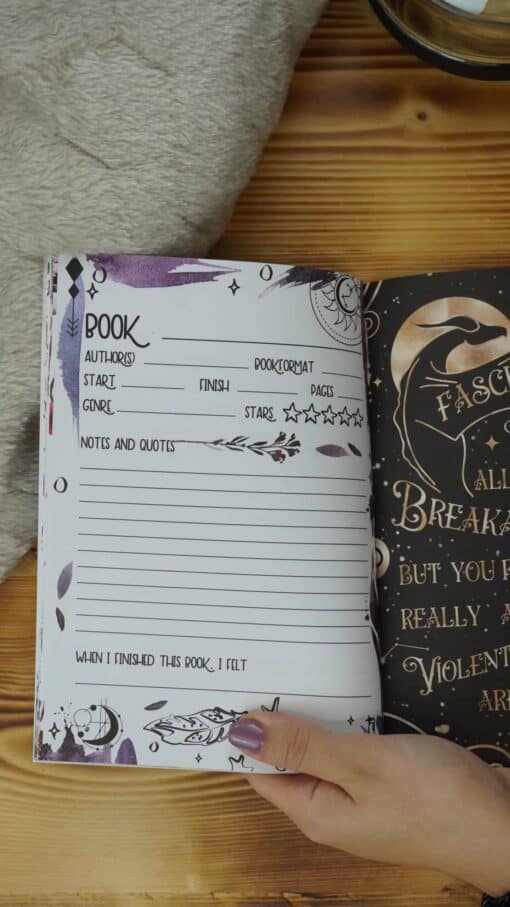 BOOK
AUTHOR(S) BOOKFORMAT
START FINISH PAGES
GENRE STARS
NOTES AND QUOTES
WHEN I FINISHED THIS BOOK, I FELT
ALL
BUT YOU
REALLY
VIOLENT